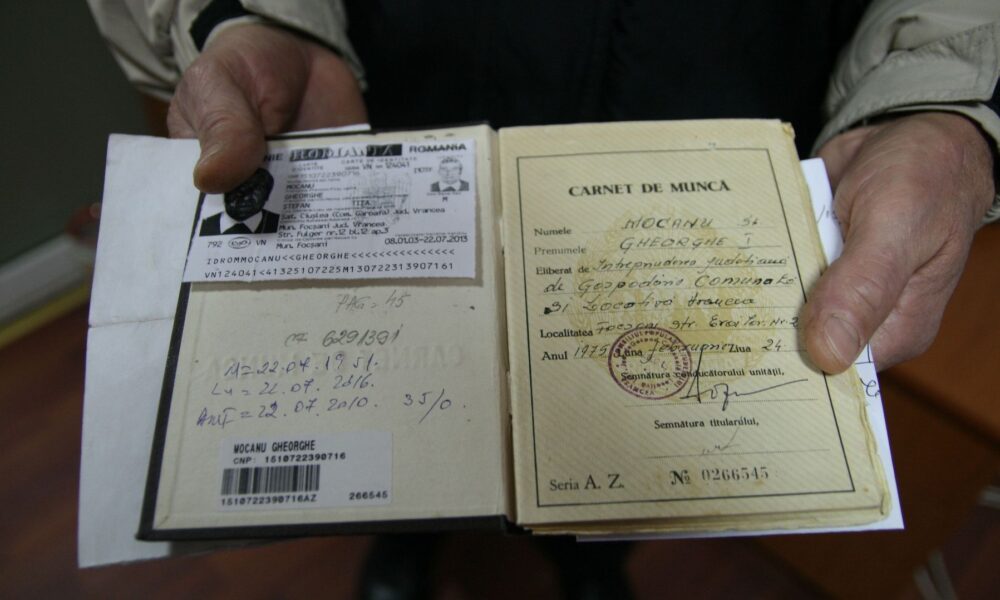 ROMANIA
CARTE DE IDENTITATE
VN 124041
1510722390716
MOCANU
GHEORGHE
STEFAN TITA
M
Sat. Ciuşlea (Com. Garoafa) Jud. Vrancea
Mun. Focşani Jud. Vrancea
Str. Fulger nr.12 bl.12 ap.3
792 VN Mun. Focşani 08.01.03-22.07.2013
IDROMMOCANU<<GHEORGHE<<<<<<<<<<<<<<
VN124041<41325107225M130722313907161
PAG = 45
629/391
N=22.07.1951.
22.07.2016.
ANT = 22.07.2010. 35/0.
MOCANU GHEORGHE
CNP: 1510722390716
1510722390716AZ 266545
CARNET DE MUNCĂ
Numele MOCANU Şt
Prenumele GHEORGHE I
Eliberat de Intreprinderea Judeţeană
de Gospodărie Comunală
şi Locativă Vrancea
Localitatea Focşani str. Nr. 2
Anul 1975 Luna Ziua 24
Semnătura conducătorului unităţii,
Semnătura titularului,
Seria A. Z. Nº 0266545